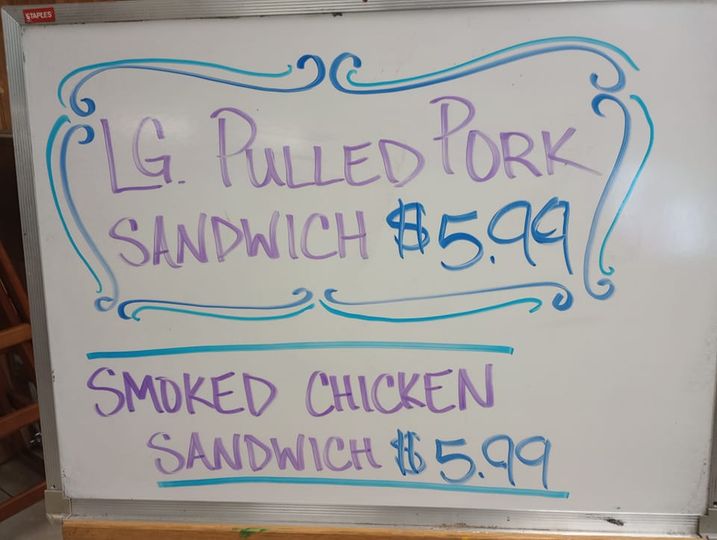 STAPLES
LG. PULLED PORK
SANDWICH $5.99
SMOKED CHICKEN
SANDWICH $5.99